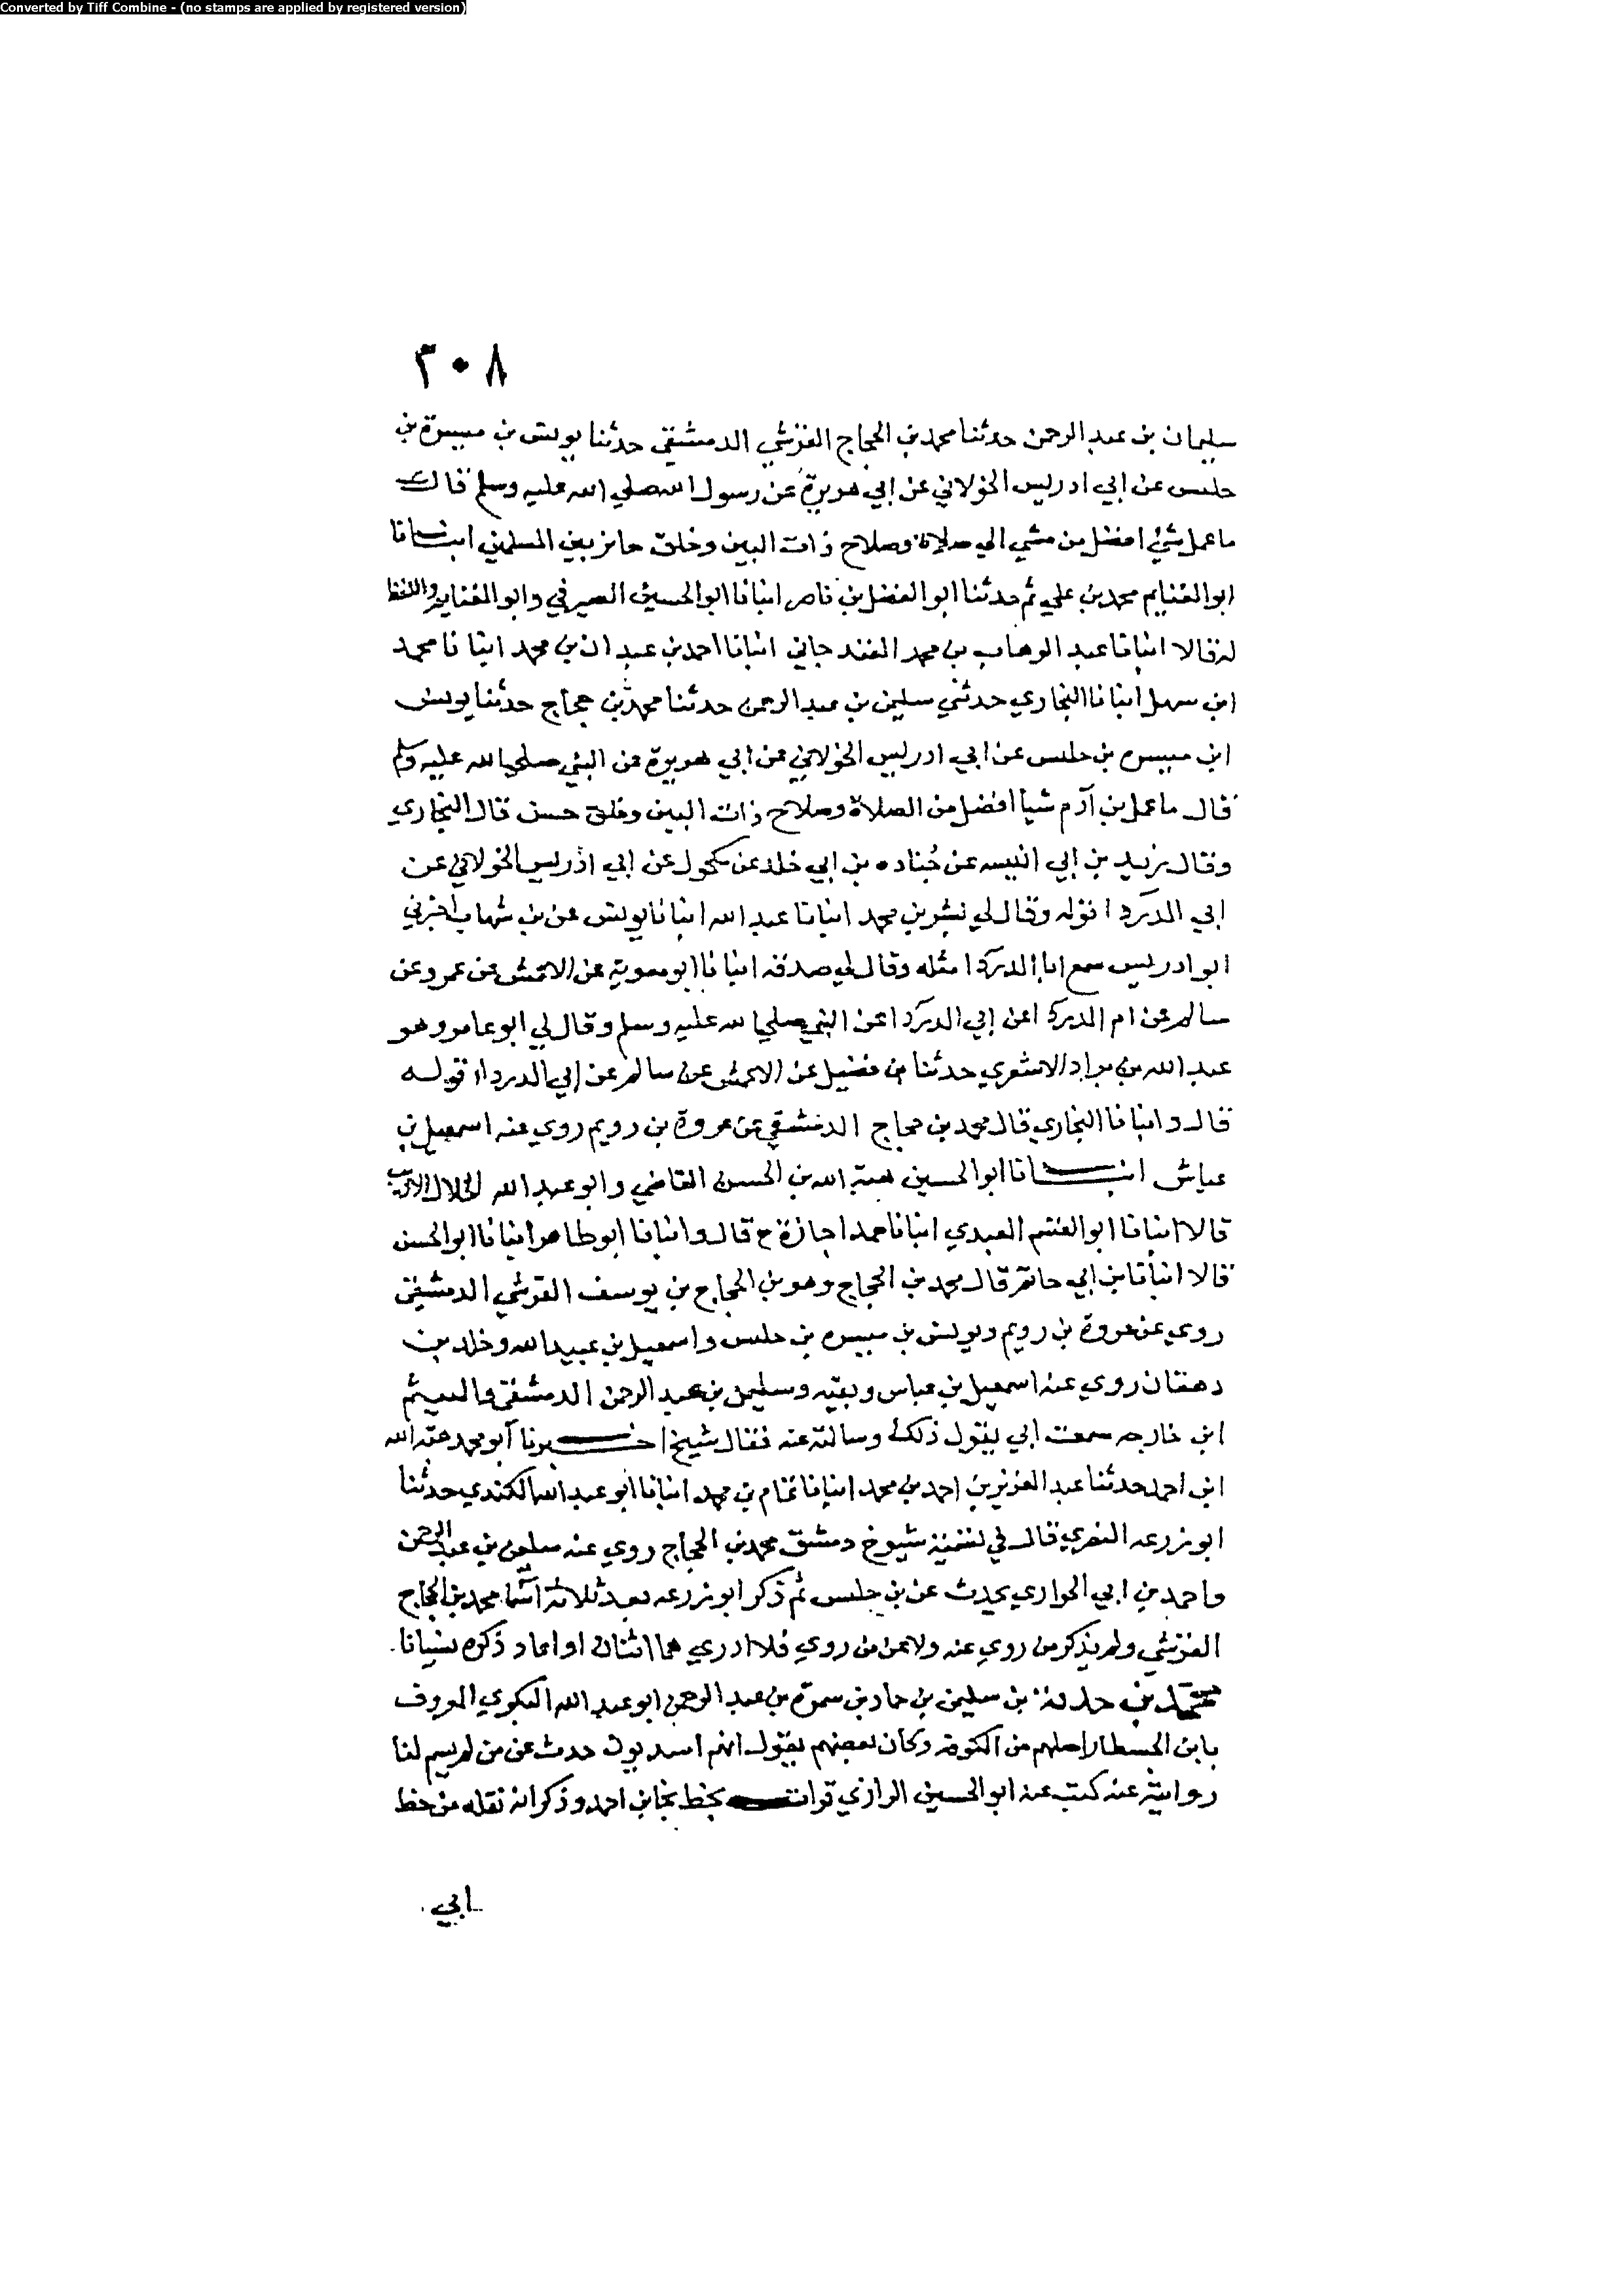 Converted by Tiff Combine - (no stamps are applied by registered version)
٣٠٨
سليمان بن عبد الرحمن حدثنا محمد بن الحجاج القرشي الدمشقي حدثنا يونس بن ميسرة بن
حلبس عن ابي ادريس الخولاني عن ابي هريرة عن رسول الله صلي الله عليه وسلم قال
ما عمل شئ افضل من مشي الي صلاة وصلاح ذات البين وخلق حائز بين المسلمين انبانا
ابو الغنايم محمد بن علي ثم حدثنا ابو الفضل بن ناصر انبانا ابو الحسين الصيرفي وابو الغنايم واللفظ
له قالا انبانا عبد الوهاب بن محمد الغندجاني انبانا احمد بن عبدان بن محمد انبانا محمد
ابن سهل انبانا البخاري حدثني سليمن بن عبد الرحمن حدثنا محمد بن حجاج حدثنا يونس
ابن ميسره بن حلبس عن ابي ادريس الخولاني عن ابي هريرة عن النبي صلي الله عليه وسلم
قال ما عمل بن آدم شيا افضل من الصلاة وصلاح ذات البين وخلق حسن قال البخاري
وقال زيد بن ابي انيسه عن جُناده بن ابي خلد عن مكحول عن ابي ادريس الخولاني عن
ابي الدرداء قوله وقال لي بشر بن محمد انبانا عبد الله انبانا يونس عن بن شهاب اخبرني
ابو ادريس سمع ابا الدرداء مثله وقال لي صدقه انبانا ابو معوية عن الاعمش عن عمرو عن
سالم عن ام الدرداء عن ابي الدرداء عن النبي صلي الله عليه وسلم وقال لي ابو عامر وهو
عبد الله بن براد الاشعري حدثنا بن فضيل عن الاعمش عن سالم عن ابي الدرداء قوله
قال وانبانا البخاري قال محمد بن حجاج الدمشقي عن عروة بن رويم روي عنه اسمعيل بن
عياش انبانا ابو الحسين هبة الله بن الحسن القاضي وابو عبد الله الخلال الاديب
قالا انبانا ابو القسم العبدي انبانا حمد اجازة ح قال وانبانا ابو طاهر انبانا ابو الحسن
قالا انبانا بن ابي حاتم قال محمد بن الحجاج وهو بن الحجاج بن يوسف القرشي الدمشقي
روي عن عروة بن رويم ويونس بن ميسره بن حلبس واسمعيل بن عبيد الله وخلد بن
دهقان روي عنه اسمعيل بن عياس وبقيه وسليمن بن عبد الرحمن الدمشقي والهيثم
ابن خارجه سمعت ابي يقول ذلك وسالته عنه فقال شيخ اخبرنا ابو محمد هبة الله
ابن احمد حدثنا عبد العزيز بن احمد بن محمد انبانا تمام بن محمد انبانا ابو عبد الله الكندي حدثنا
ابو زرعه النصري قال في تسمية شيوخ دمشق محمد بن الحجاج روي عنه سليمن بن عبد الرحمن
واحمد بن ابي الحواري يحدث عن بن حلبس ثم ذكر ابو زرعه بعد ثلاثة اسما محمد بن الحجاج
القرشي ولم يذكر من روي عنه ولا عن من روي فلا ادري هما اثنان او اعاد ذكره نسيانا.
محمد بن حامد بن سليمن بن حماد بن سمرة بن عبد الرحمن ابو عبد الله البكري المعروف
بابن اصلهم من الكوفة وكان بعضهم يقول انهم اسديون حدث عن من لم يسم لنا
روايته عنه كتب عنه ابو الحسين الرازي قرات بخط نجا بن احمد وذكر انه نقله من خط
ابي.